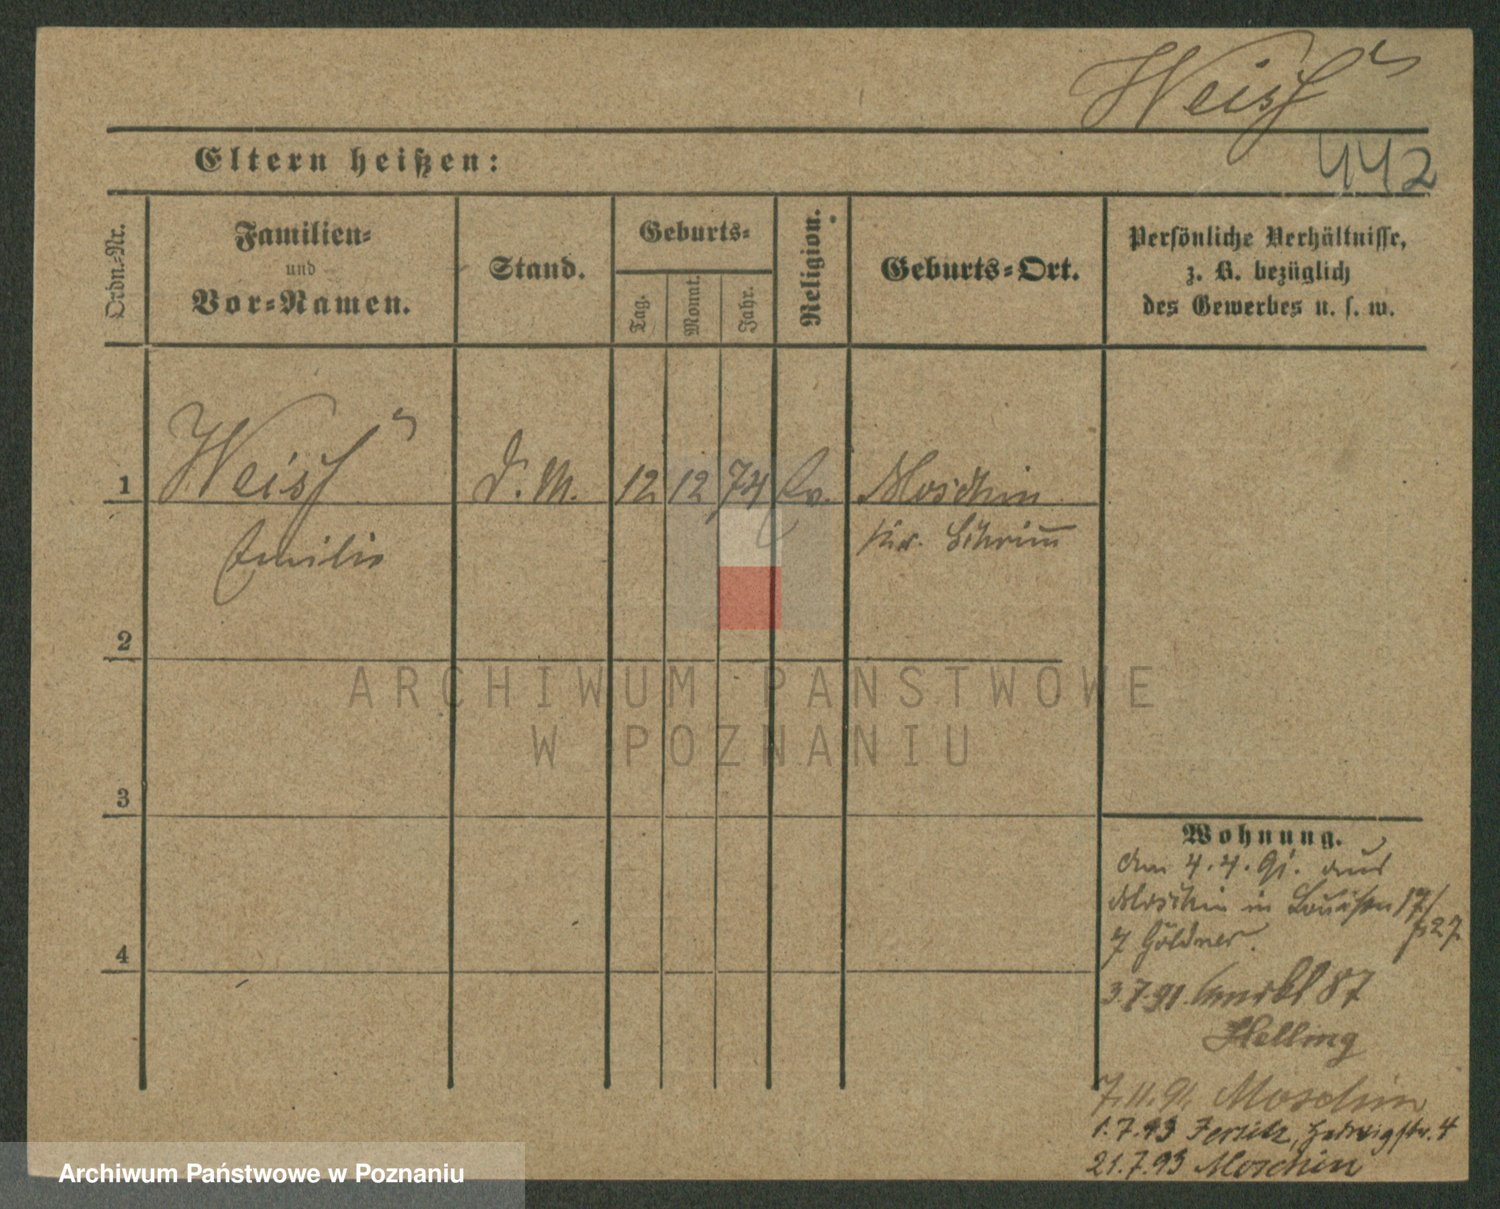 Weiß
442
Eltern heißen:
Ordn.-Nr.
Familien-
und
Vor-Namen.
Stand.
Geburts-
Tag.
Monat.
Jahr.
Religion.
Geburts-Ort.
Persönliche Verhältnisse,
z. B. bezüglich
des Gewerbes u. s. w.
1 Weiß D. M. 12 12 74 Ev. Moschin
Emilie Kr. Schrimm
2
ARCHIWUM PAŃSTWOWE
W POZNANIU
3
4
Wohnung.
den 4. 4. 91. aus
Moschin in Louisen 17/
Göldner.
3.7.91. 87
Helling
7.11.91 Moschin
1.7.93 Jersitz, Hedwigstr. 4
21.7.93 Moschin
Archiwum Państwowe w Poznaniu